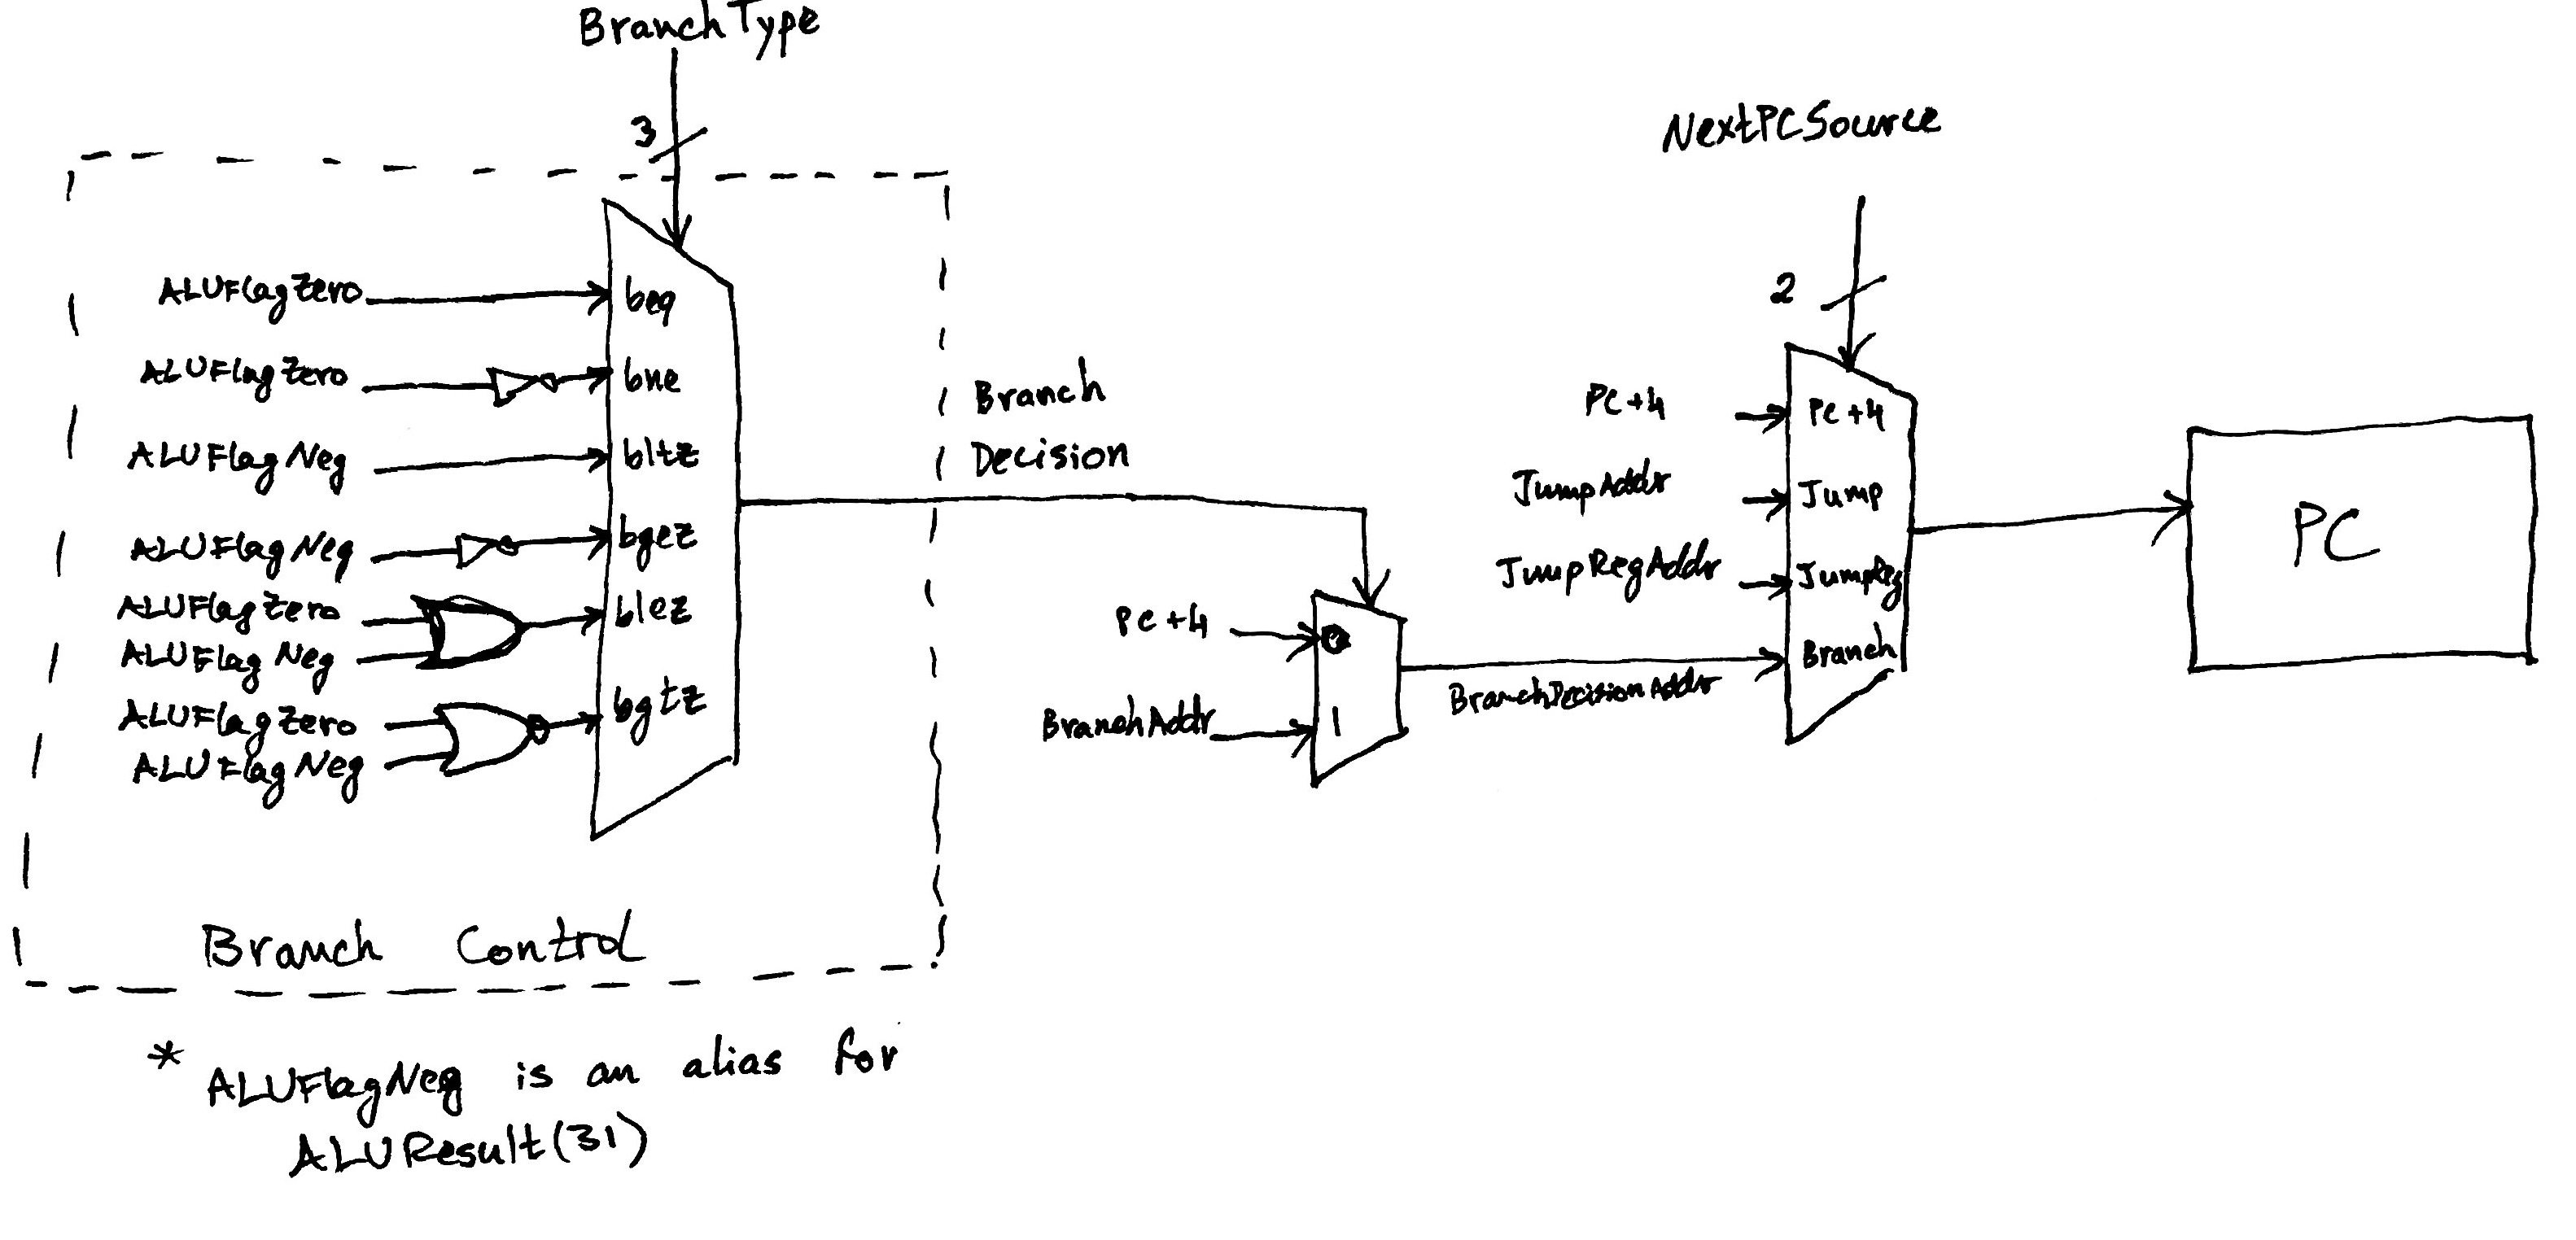 BranchType
3
NextPCSource
2
ALUFlagZero
beq
ALUFlagZero
bne
ALUFlagNeg
bltz
ALUFlagNeg
bgez
ALUFlagZero
ALUFlagNeg
blez
ALUFlagZero
ALUFlagNeg
bgtz
Branch Control
Branch
Decision
PC+4
0
BranchAddr
1
BranchDecisionAddr
PC+4
PC+4
JumpAddr
Jump
JumpRegAddr
JumpReg
Branch
PC
* ALUFlagNeg is an alias for
ALUResult(31)